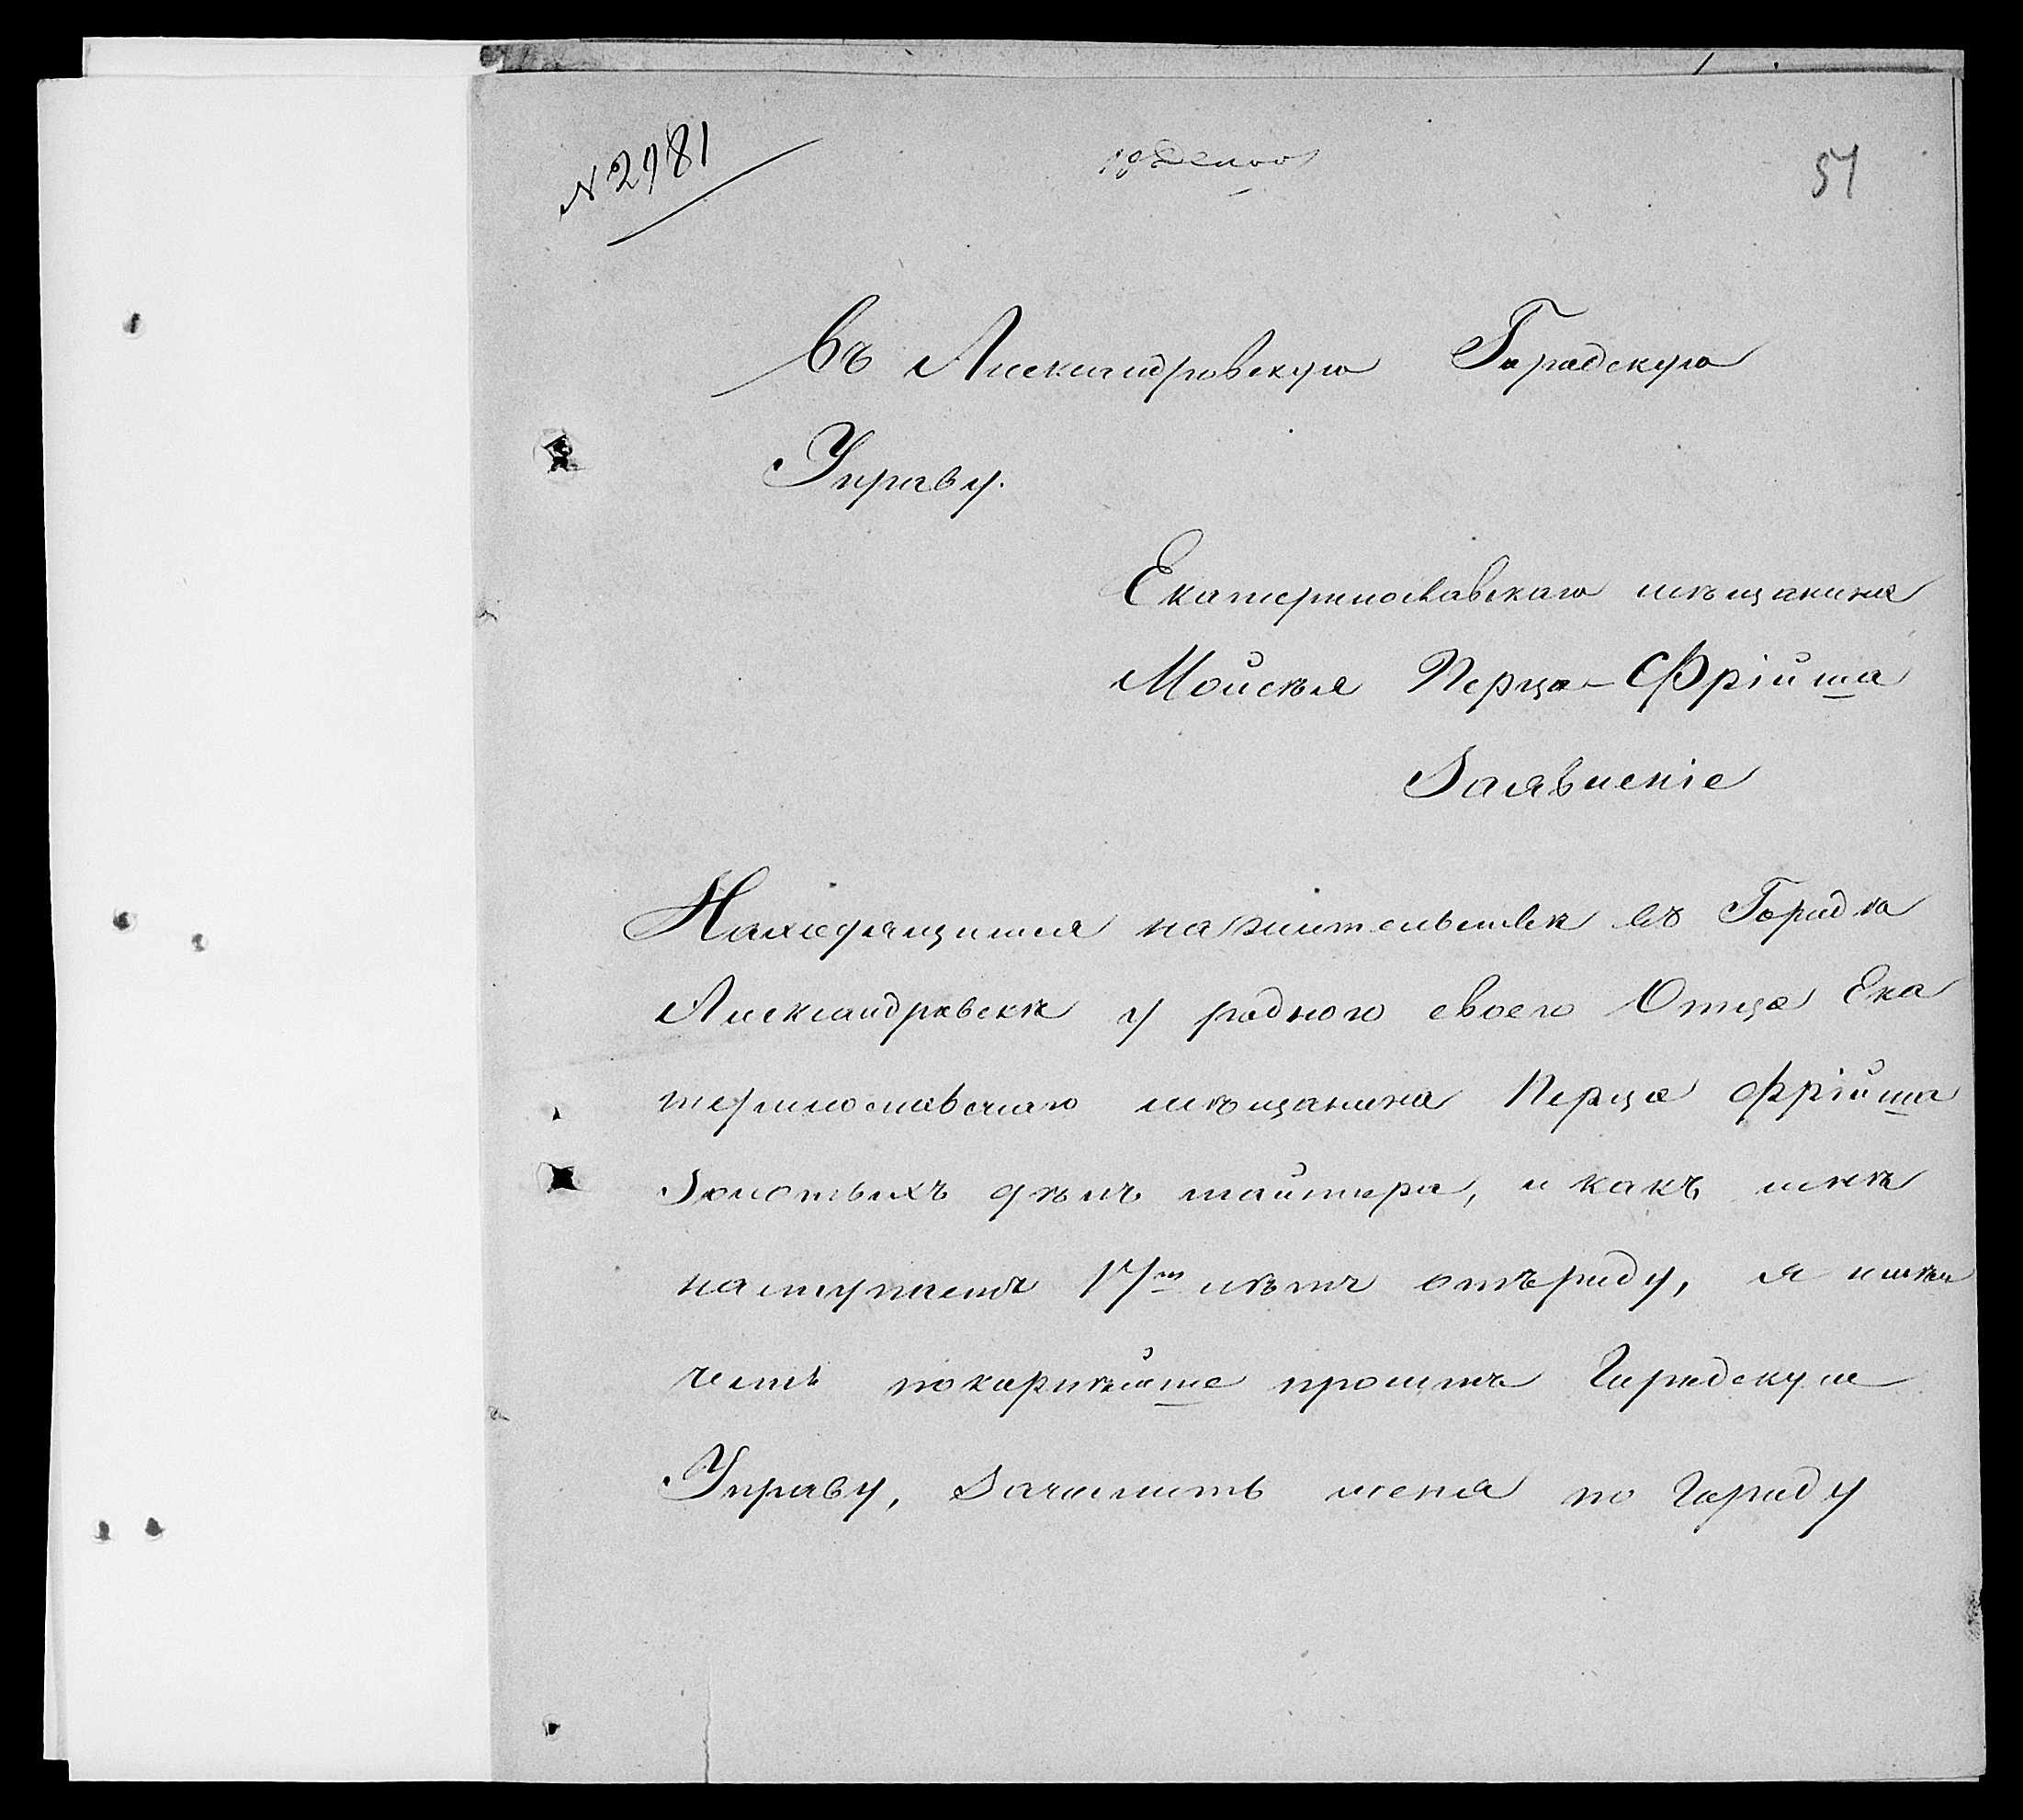 № 2981
51
Въ Александровскую Городскую
Управу.
Екатеринославскаго мѣщанина
Мойсѣя Перца-Фрійта
Заявленіе
Находящимся на жительствѣ въ Городѣ
Александровскѣ у родного своего Отца Ека
теринославскаго мѣщанина Перца Фрійта
Золотыхъ дѣлъ майтера, и какъ мнѣ
наступаетъ 17ть лѣтъ отъ роду, я имѣю
честь покорнѣйше просить Городскую
Управу, Зачислить меня по Городу